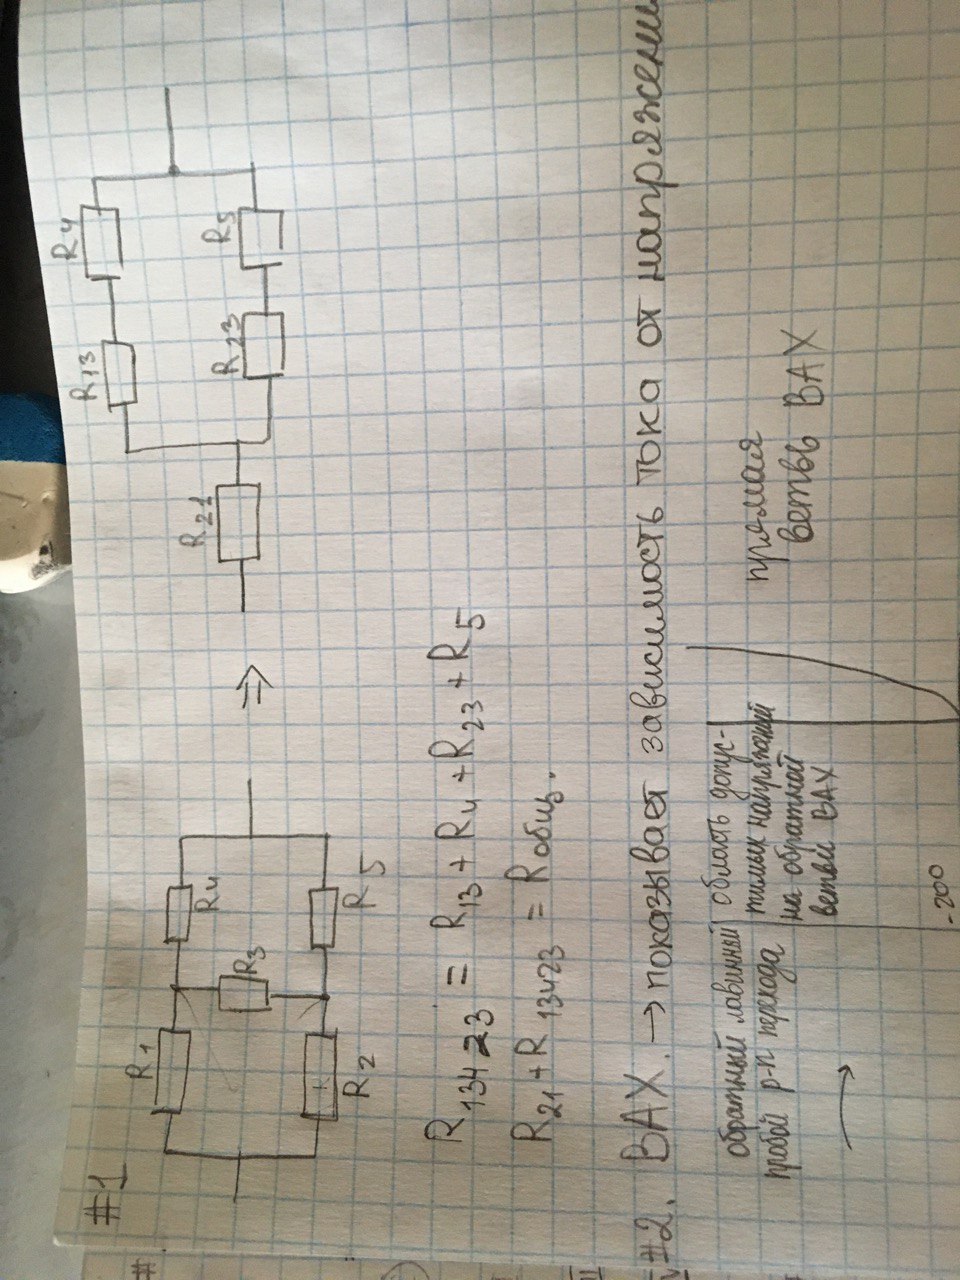 #1
R1
R4
R3
R2
R5
⇒
R21
R13
R4
R23
R5
R13423 = R13 + R4 + R23 + R5
R21 + R13423 = Rобщ.
#2. ВАХ. → показывает зависимость тока от напряжени
обратный лавинный
пробой p-n перехода
область допус-
тимых напряжений
на обратной
ветви ВАХ
прямая
ветвь ВАХ
-200
#